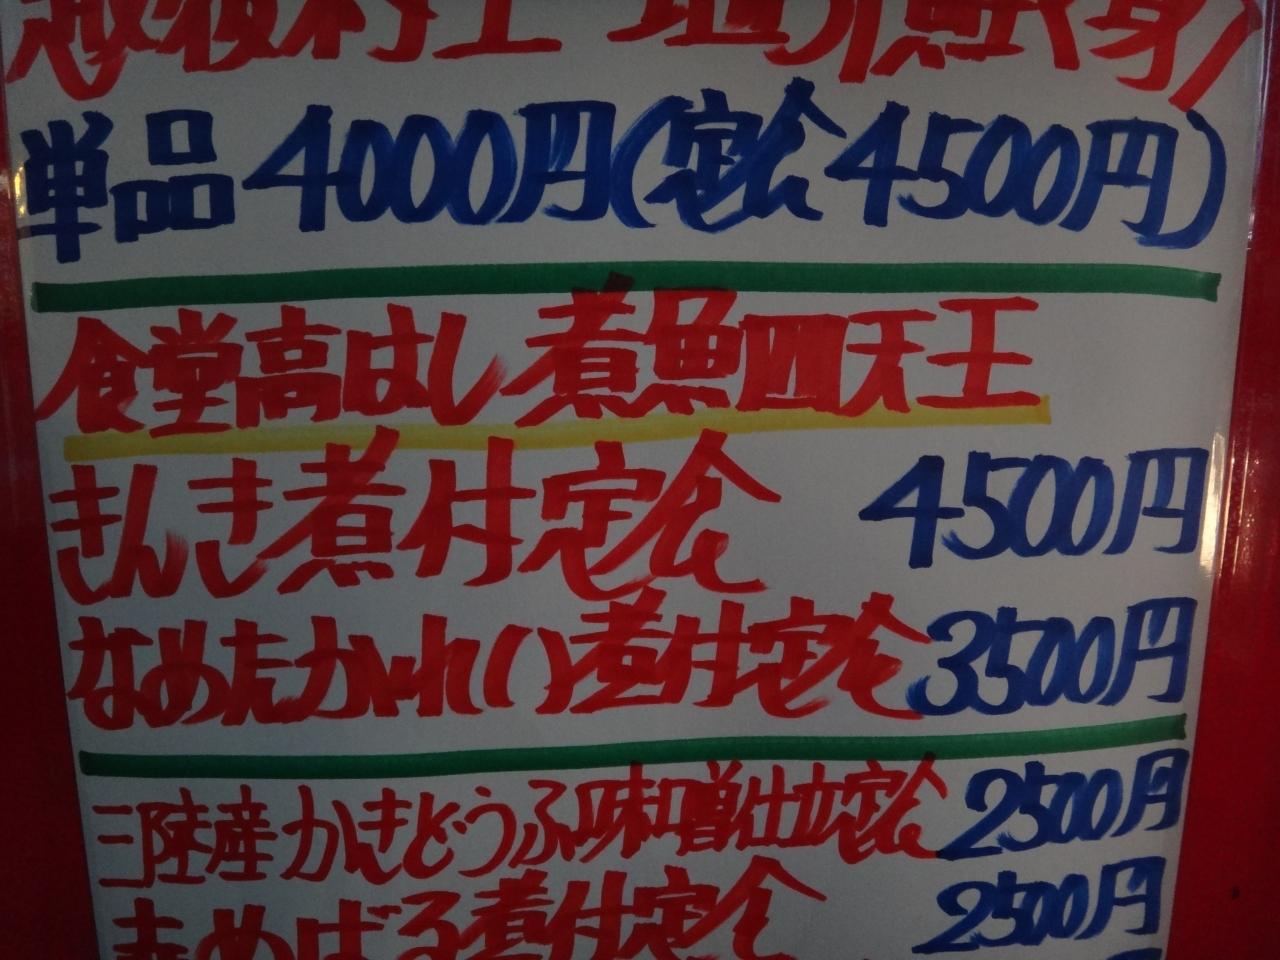 越後村上 地引鮭(身)
単品4000円(定食4500円)
食堂高はし 煮魚四天王
きんき煮付定食 4500円
なめたかれい煮付定食 3500円
三陸産かきどうふ味噌仕立定食 2500円
赤めばる煮付定食 2500円